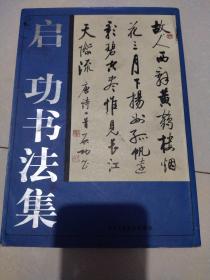 启功书法集
故人西辞黄鹤楼烟
花三月下扬州孤帆远
影碧空尽惟见长江
天际流 唐诗一首 启功